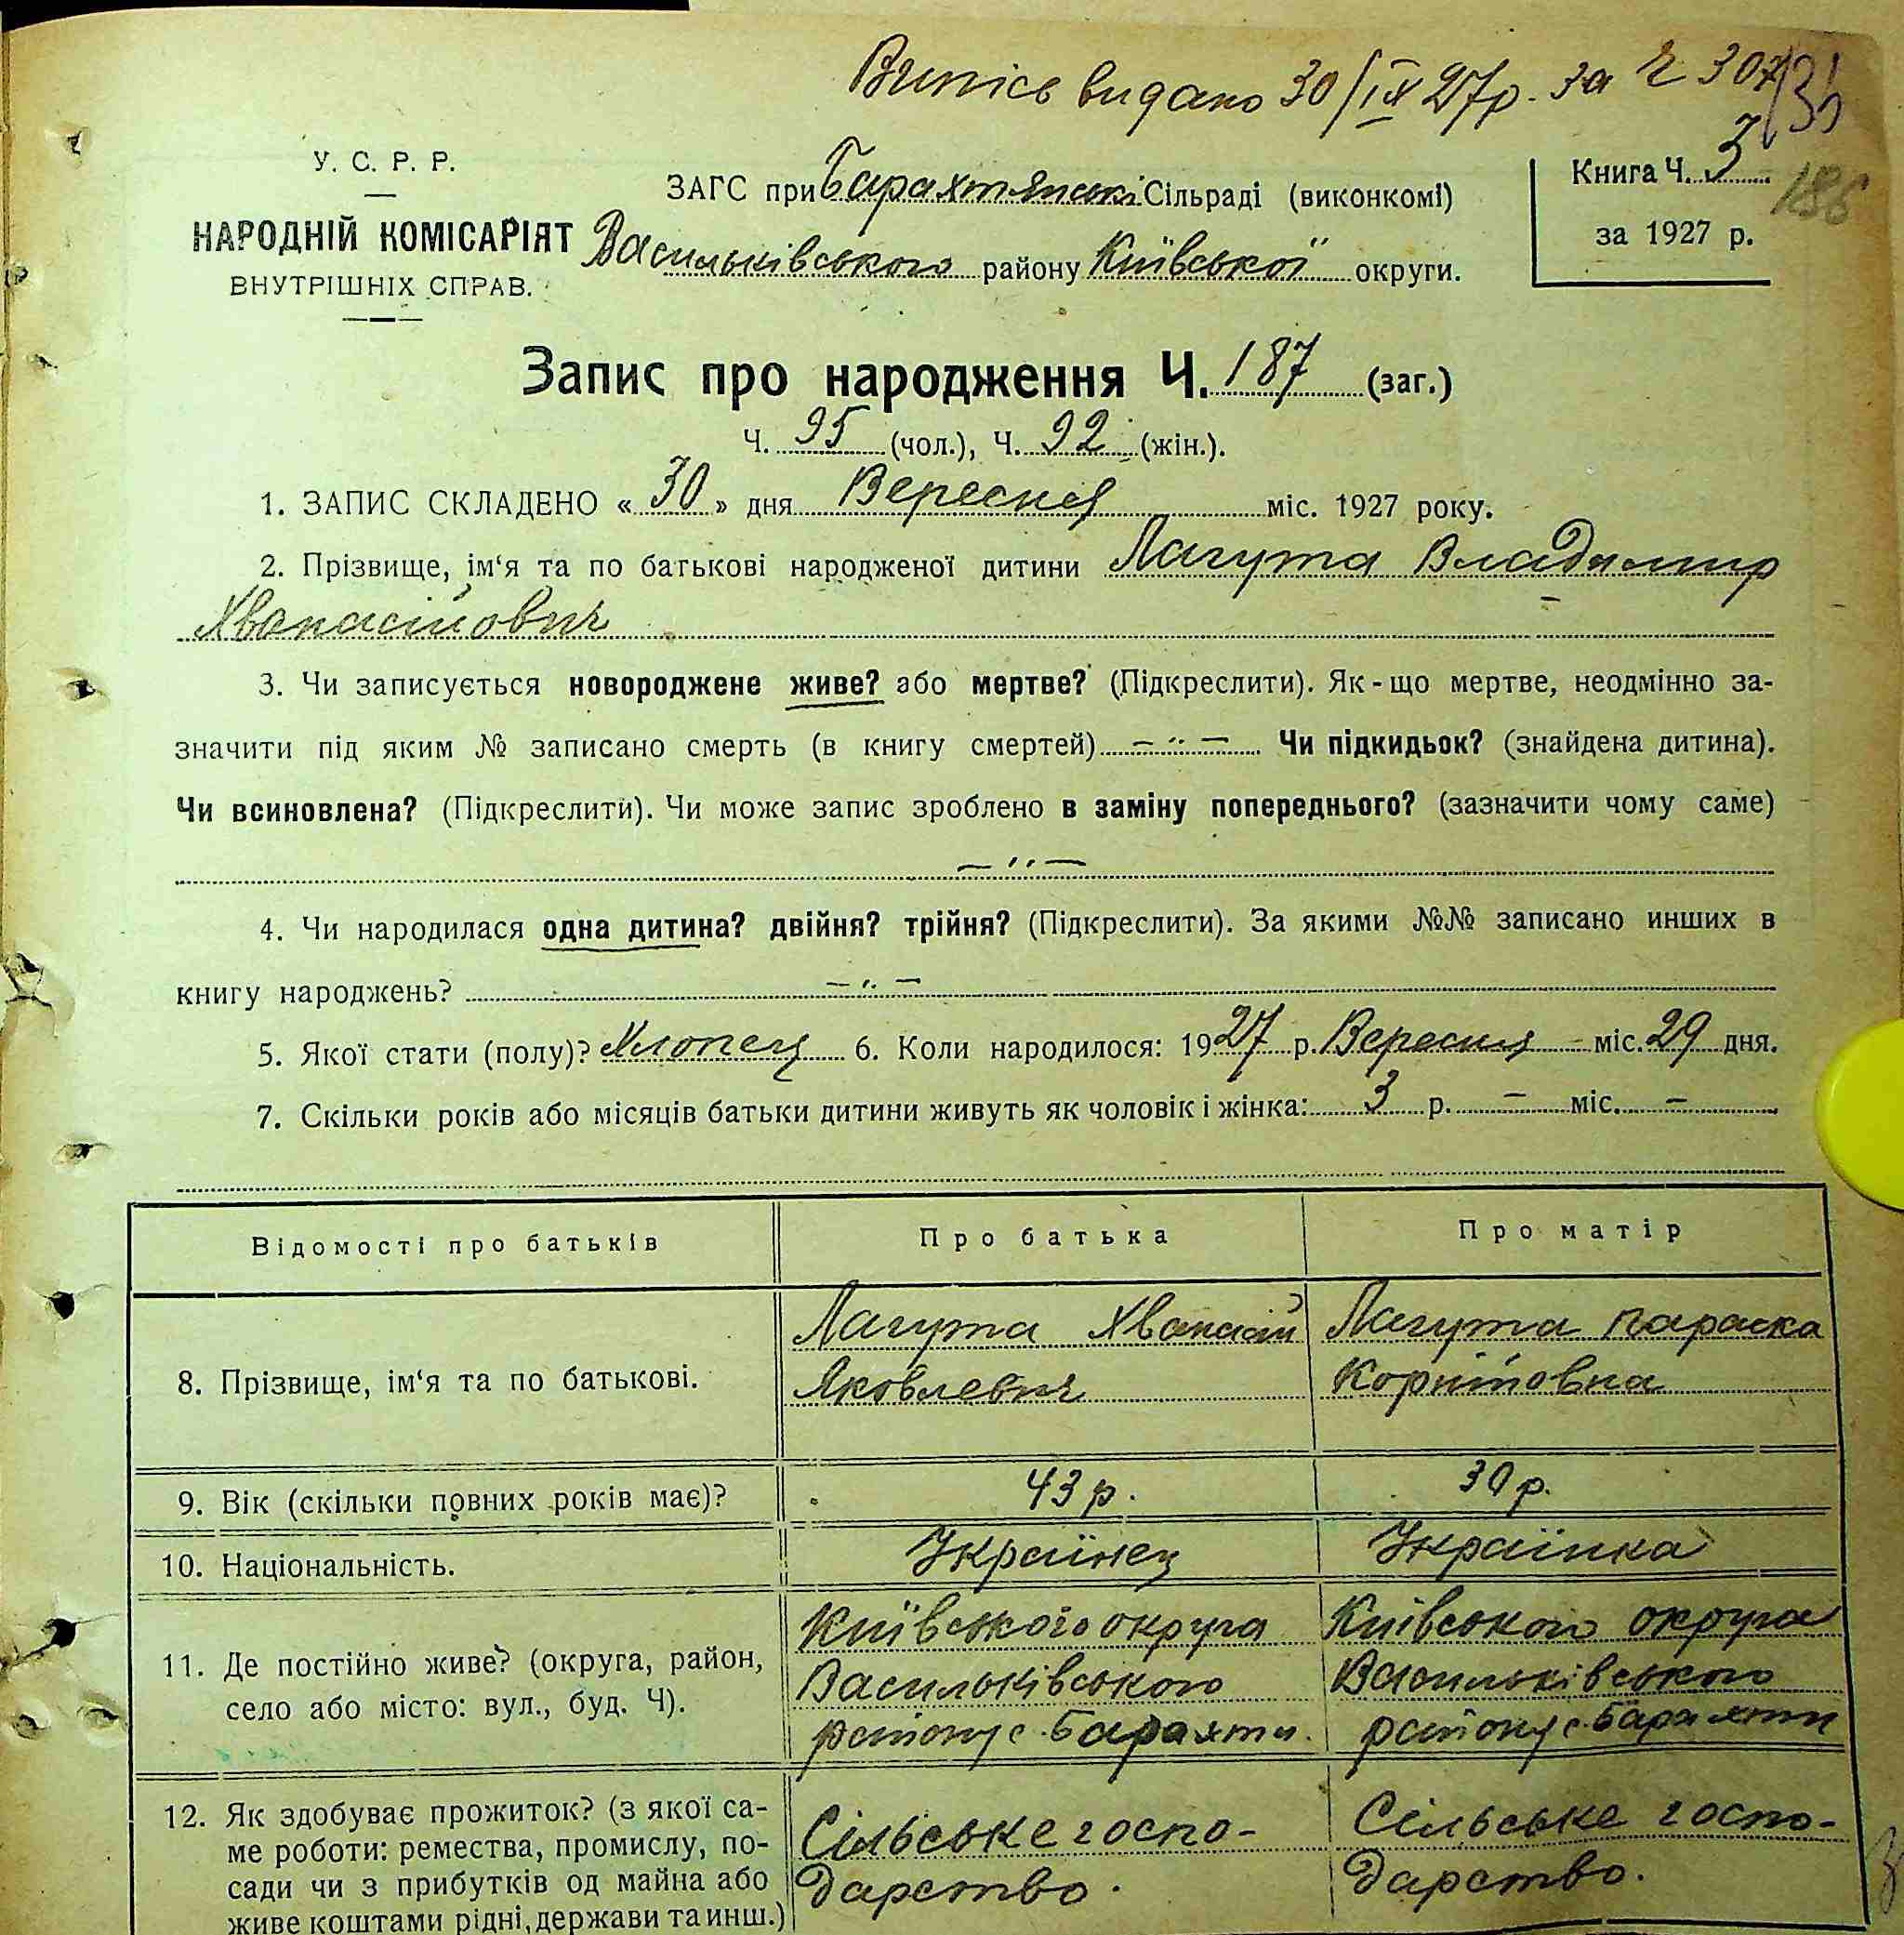 Випісь видано 30/IX 27р. за Ч 307
У. С. Р. Р.
НАРОДНІЙ КОМІСАРІЯТ
ВНУТРІШНІХ СПРАВ.
ЗАГС при Барахтянські Сільраді (виконкомі)
Васильківського району Київської округи.
Книга Ч. 3
186
за 1927 р.
Запис про народження Ч. 187 (заг.)
Ч. 95 (чол.), Ч. 92 (жін.).
1. ЗАПИС СКЛАДЕНО « 30 » дня Вересня міс. 1927 року.
2. Прізвище, ім‘я та по батькові народженої дитини Лагута Владимир
Хванасійович
3. Чи записується новороджене живе? або мертве? (Підкреслити). Як-що мертве, неодмінно за-
значити під яким № записано смерть (в книгу смертей) — „ — Чи підкидьок? (знайдена дитина).
Чи всиновлена? (Підкреслити). Чи може запис зроблено в заміну попереднього? (зазначити чому саме)
— „ —
4. Чи народилася одна дитина? двійня? трійня? (Підкреслити). За якими №№ записано инших в
книгу народжень? — „ —
5. Якої стати (полу)? Хлопец 6. Коли народилося: 1927 р. Вересня міс. 29 дня.
7. Скільки років або місяців батьки дитини живуть як чоловік і жінка: 3 р. — міс. —
Відомості про батьків
Про батька
Про матір
8. Прізвище, ім‘я та по батькові.
Лагута Хванасій
Яковлевич
Лагута Параска
9. Вік (скільки повних років має)?
43 р.
30 р.
10. Національність.
Українец
Українка
11. Де постійно живе? (округа, район,
село або місто: вул., буд. Ч).
Київського округа
Васильківського
району с. Барахти.
Київського округа
Васильківського
району с. Барахти
12. Як здобуває прожиток? (з якої са-
ме роботи: ремества, промислу, по-
сади чи з прибутків од майна або
живе коштами рідні, держави та инш.)
Сільське госпо-
дарство.
Сільське госпо-
дарство.